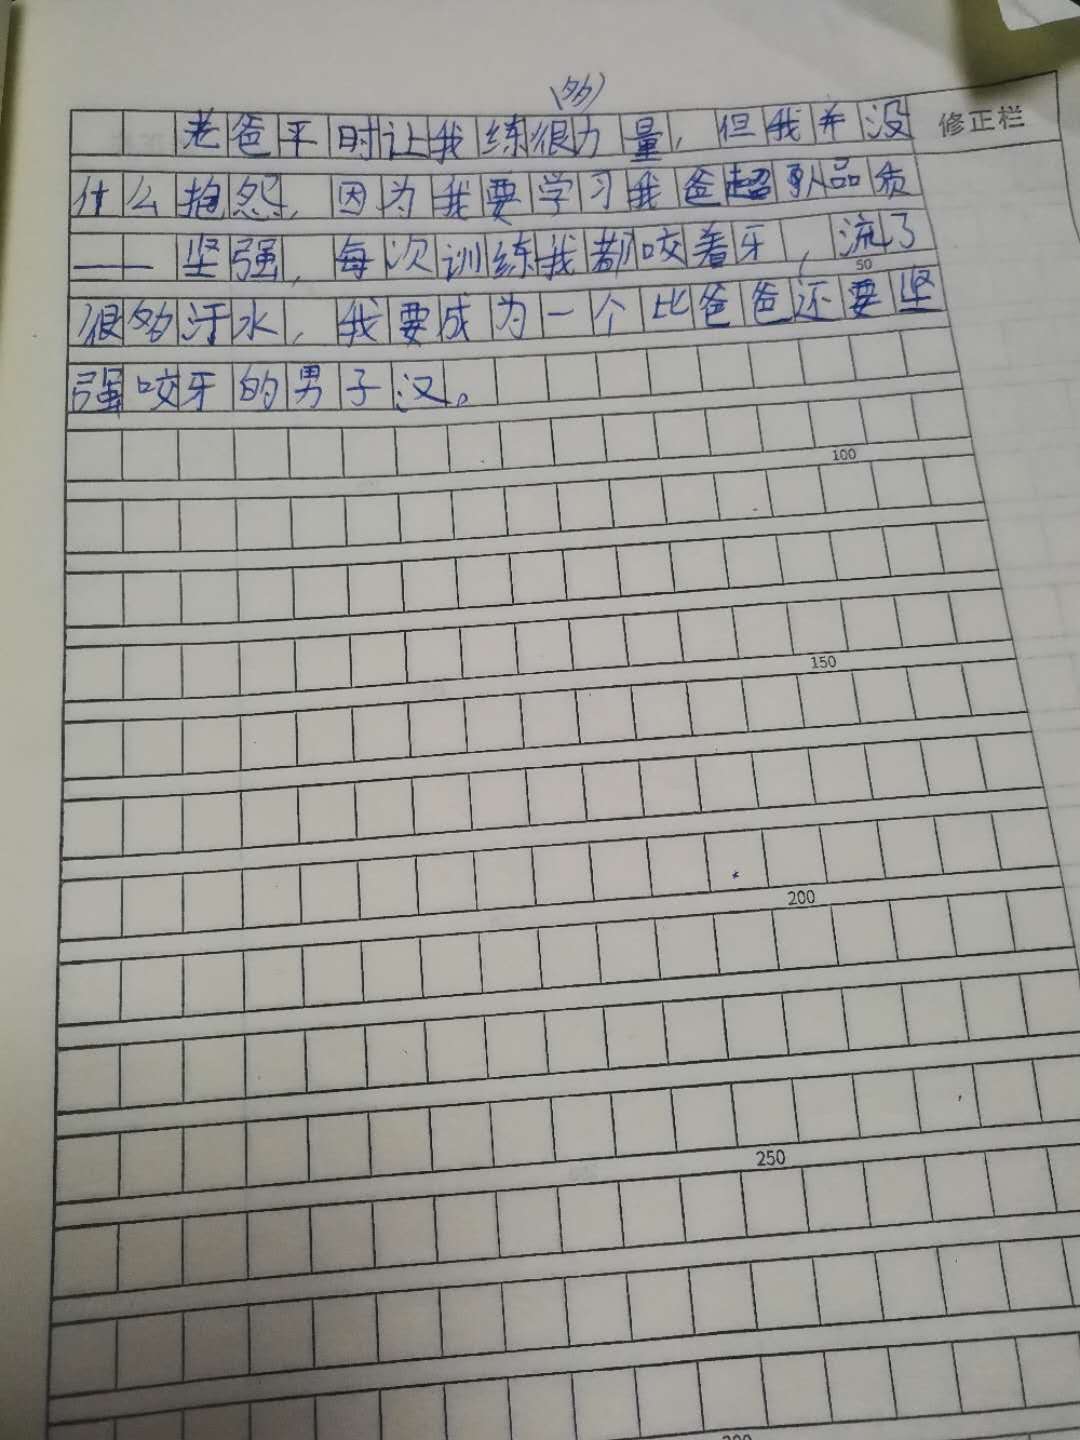 (多)
老爸平时让我练很力量，但我并没
修正栏
什么抱怨，因为我要学习我爸超队品质
——坚强，每次训练我都咬着牙，流了
50
很多汗水，我要成为一个比爸爸还要坚
强咬牙的男子汉。
100
150
200
250